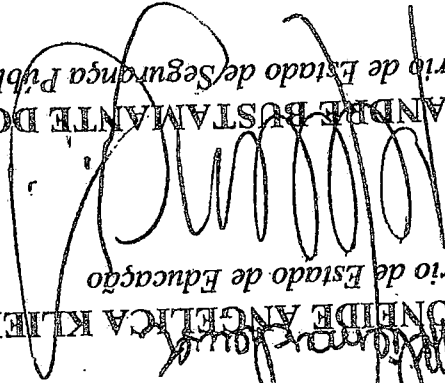 ONEIDE ANGELICA KLIE
rio de Estado de Educação
ANDRE BUSTAMANTE DO
rio de Estado de Segurança Públ